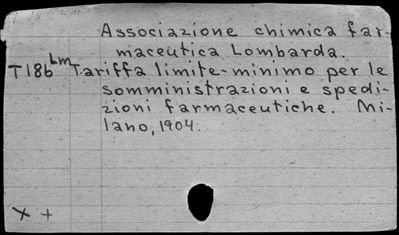 Associazione chimica far-
maceutica Lombarda.
T18b Lm Tariffa limite-minimo per le
somministrazioni e spedi-
zioni farmaceutiche. Mi-
lano, 1904.
x +